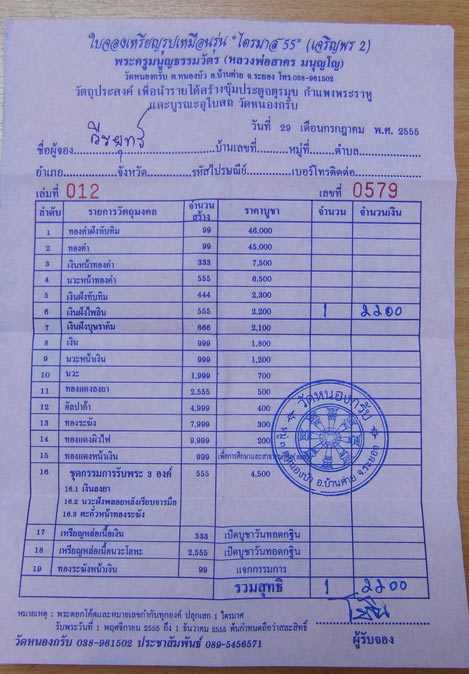 ใบจองเหรียญรูปเหมือนรุ่น "ไตรมาส 55" (เจริญพร 2)
พระครูมนูญธรรมวัตร (หลวงพ่อสาคร มนุญฺโญ)
วัดหนองกรับ ต.หนองบัว อ.บ้านค่าย จ.ระยอง โทร.038-961502
วัตถุประสงค์ เพื่อนำรายได้สร้างซุ้มประตูจตุรมุข กำแพงพระราหู
และบูรณะอุโบสถ วัดหนองกรับ
วันที่ 29 เดือนกรกฎาคม พ.ศ. 2555
ชื่อผู้จอง วีรยุทธ์ บ้านเลขที่ หมู่ที่ ตำบล
อำเภอ จังหวัด รหัสไปรษณีย์ เบอร์โทรติดต่อ
เล่มที่ 012 เลขที่ 0579
ลำดับ รายการวัตถุมงคล จำนวนสร้าง ราคาบูชา จำนวน จำนวนเงิน
1 ทองคำฝังทับทิม 99 46,000
2 ทองคำ 99 45,000
3 เงินหน้าทองคำ 333 7,500
4 นวะหน้าทองคำ 555 6,500
5 เงินฝังทับทิม 444 2,300
6 เงินฝังไพลิน 555 2,200 1 2200
7 เงินฝังบุษราคัม 666 2,100
8 เงิน 999 1,800
9 นวะหน้าเงิน 999 1,200
10 นวะ 1,999 700
11 ทองแดงลงยา 2,555 500
12 อัลปาก้า 4,999 400
13 ทองระฆัง 7,999 300
14 ทองแดงผิวไฟ 9,999 200
15 ทองแดงหน้าเงิน 999 เพื่อการศึกษาและสาธารณ
16 ชุดกรรมการรับพระ 3 องค์ 555 4,500
16.1 เงินลงยา
16.2 นวะฝังพลอยหลังเรียบจารมือ
16.3 ตะกั่วหน้าทองระฆัง
17 เหรียญหล่อเนื้อเงิน 333 เปิดบูชาวันทอดกฐิน
18 เหรียญหล่อเนื้อนวะโลหะ 2,555 เปิดบูชาวันทอดกฐิน
19 ทองระฆังหน้าเงิน 99 แจกกรรมการ
รวมสุทธิ 1 2200
วัดหนองกรับ
ต.หนองบัว อ.บ้านค่าย จ.ระยอง
หมายเหตุ : พระตอกโค้ดและหมายเลขกำกับทุกองค์ ปลุกเสก 1 ไตรมาศ
รับพระวันที่ 1 พฤศจิกายน 2555 ถึง 1 ธันวาคม 2555 พ้นกำหนดถือว่าสละสิทธิ์
ผู้รับจอง
วัดหนองกรับ 038-961502 ประชาสัมพันธ์ 089-5456571